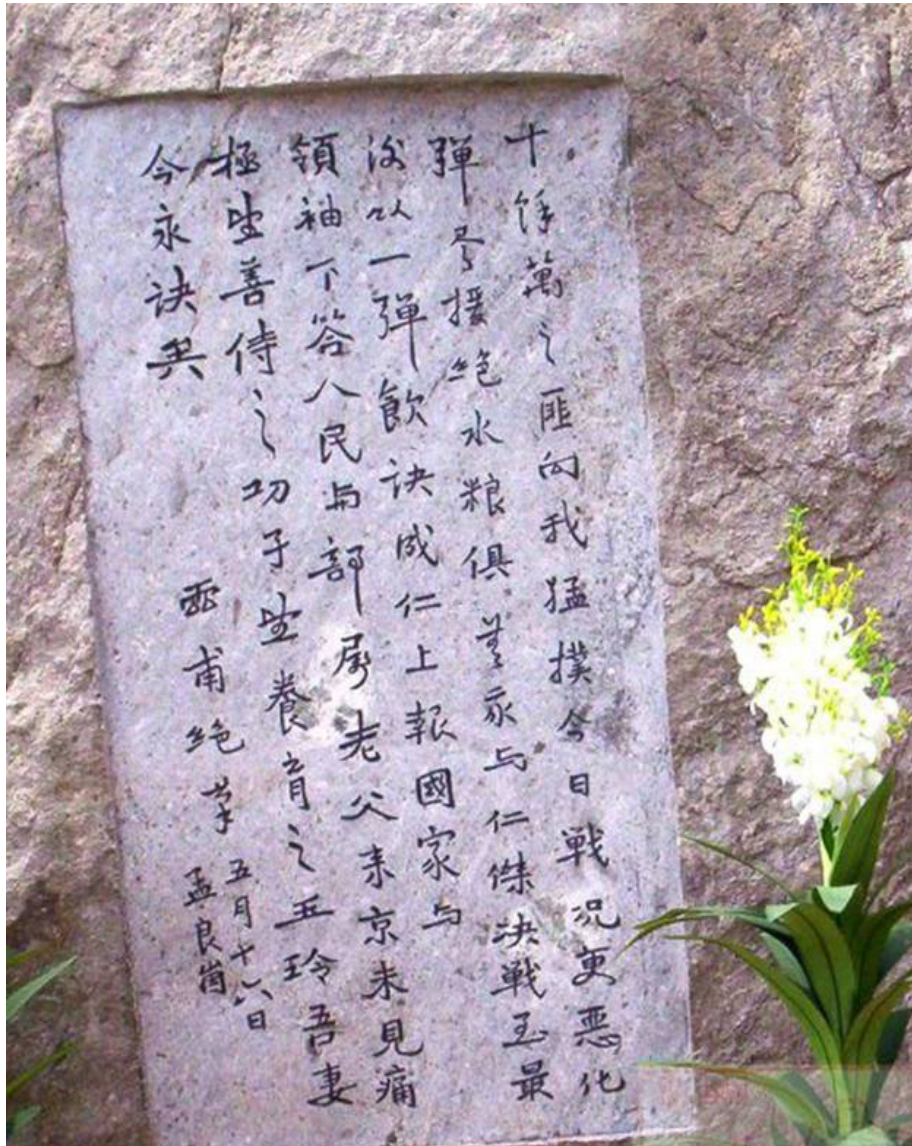 十餘萬之匪向我猛撲今日戰况更惡化
彈尽援绝水粮俱无我与仁傑决戰至最
後以一彈飲訣成仁上报國家与
領袖下答人民与部屬老父来京未見痛
極望善待之幼子望養育之玉玲吾妻
今永訣矣
靈甫绝筆 五月十六日
孟良崮